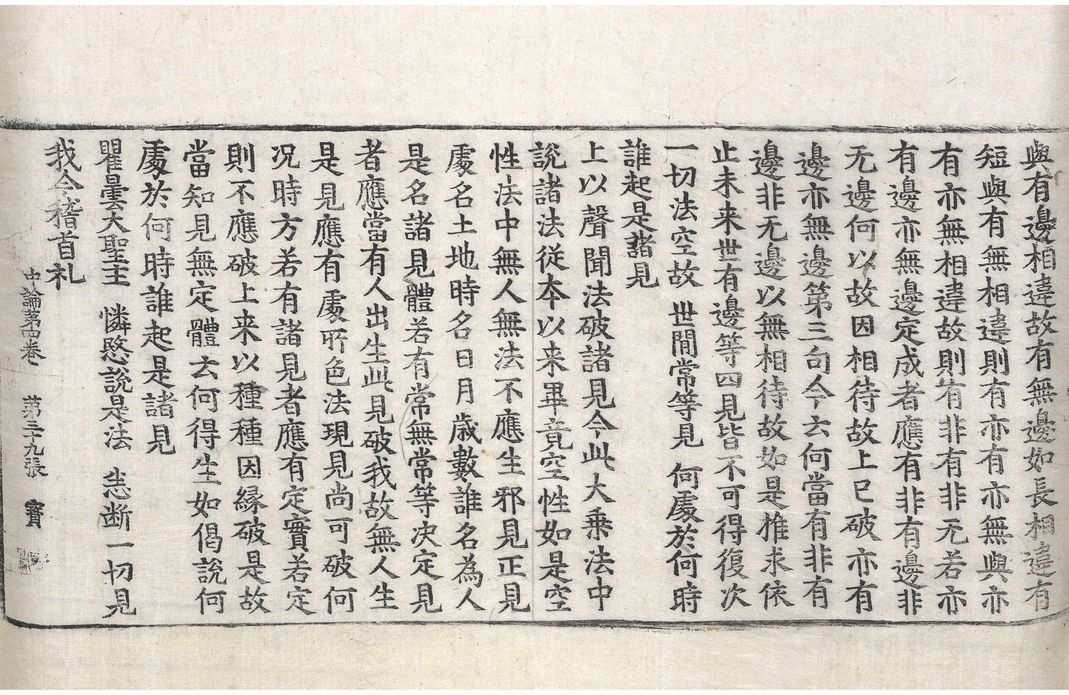 與有邊相違故有無邊如長相違有
短與有無相違則有亦有亦無與亦
有亦無相違故則有非有非无若亦
有邊亦無邊定成者應有非有邊非
无邊何以故因相待故上已破亦有
邊亦無邊第三句今云何當有非有
邊非无邊以無相待故如是推求依
止未来世有邊等四見皆不可得復次
一切法空故 世閒常等見 何處於何時
誰起是諸見
上以聲聞法破諸見今此大乗法中
說諸法從夲以来畢竟空性如是空
性法中無人無法不應生邪見正見
處名土地時名日月歲數誰名為人
是名諸見體若有常無常等決定見
者應當有人出生此見破我故無人生
是見應有處所色法現見尚可破何
况時方若有諸見者應有定實若定
則不應破上来以種種因縁破是故
當知見無定體云何得生如偈說何
處於何時誰起是諸見
瞿曇大聖主 憐愍說是法 悉断一切見
我今稽首礼
中論第四卷 第三十九張 寶